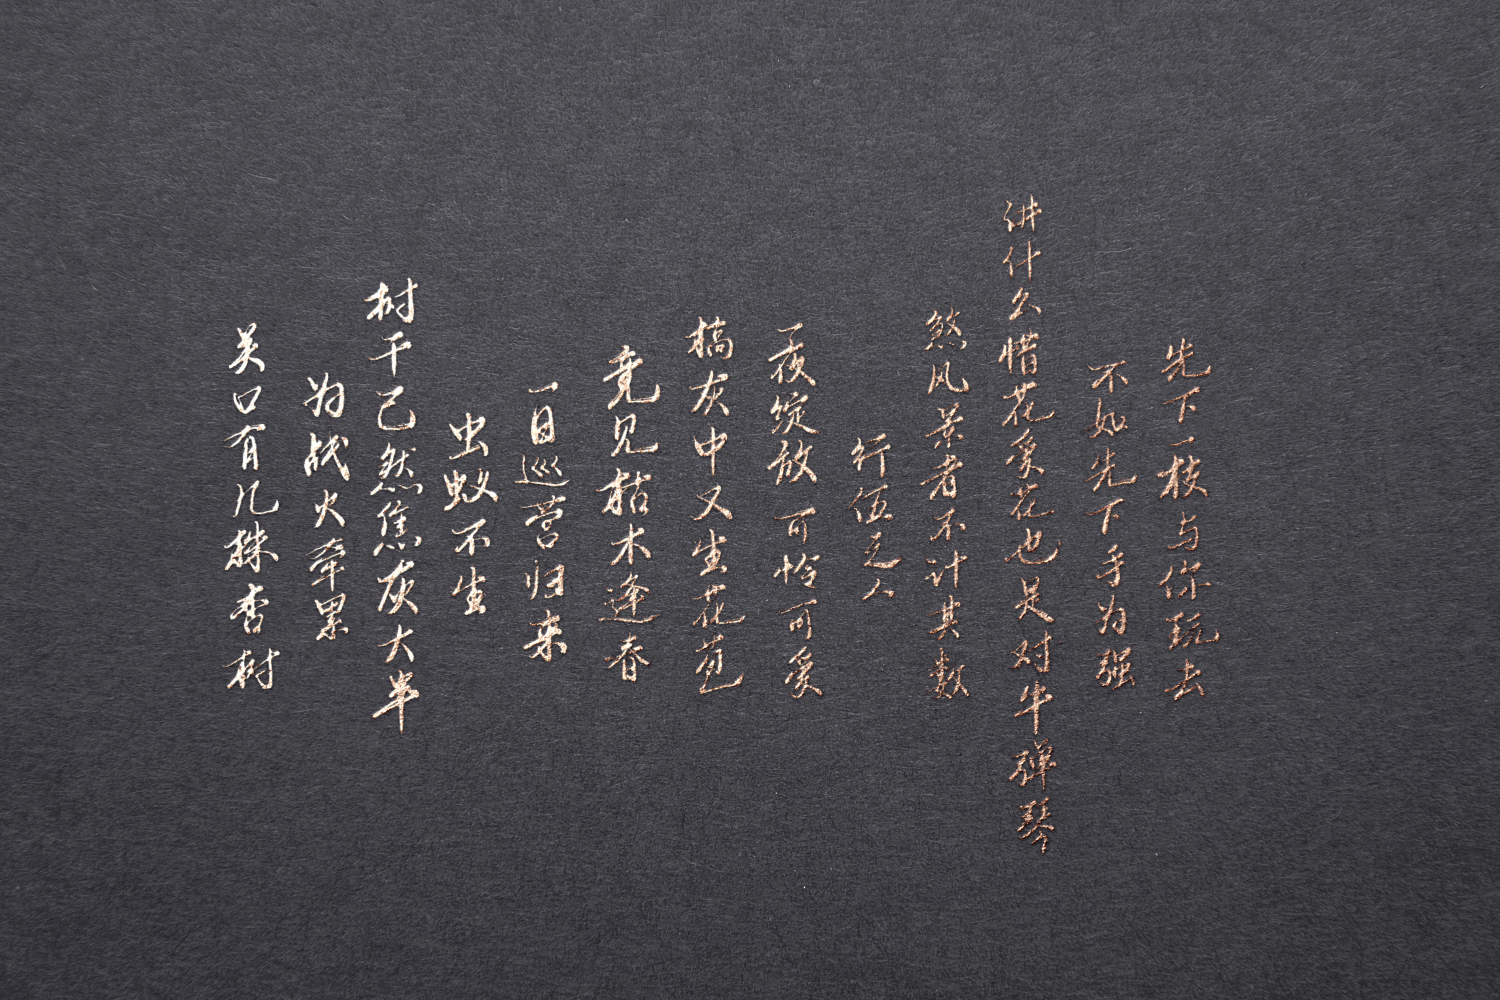 关口有几株杏树
为战火牵累
树干已然焦灰大半
虫蚁不生
一日巡营归来
竟见枯木逢春
槁灰中又生花苞
一夜绽放 可怜可爱
行伍之人
煞风景者不计其数
讲什么惜花爱花也是对牛弹琴
不如先下手为强
先下一枝与你玩去